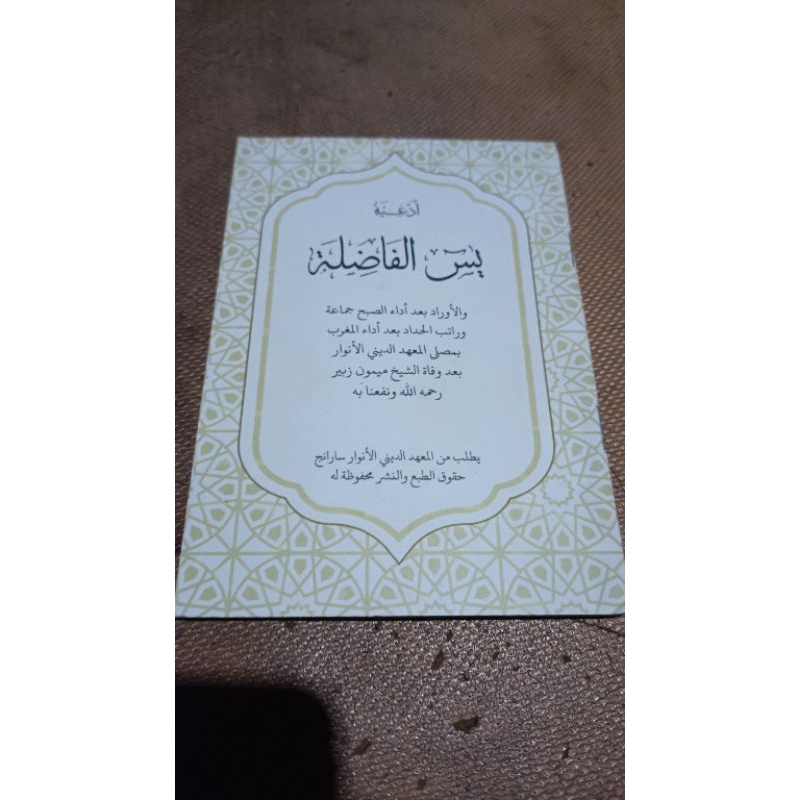 أَدْعِيَةُ
يٰسٓ الْفَاضِلَةِ
والأوراد بعد أداء الصبح جماعة
وراتب الحداد بعد أداء المغرب
بمصلى المعهد الديني الأنوار
بعد وفاة الشيخ ميمون زبير
رحمه الله ونفعنا به
يطلب من المعهد الديني الأنوار سارانج
حقوق الطبع والنشر محفوظة له